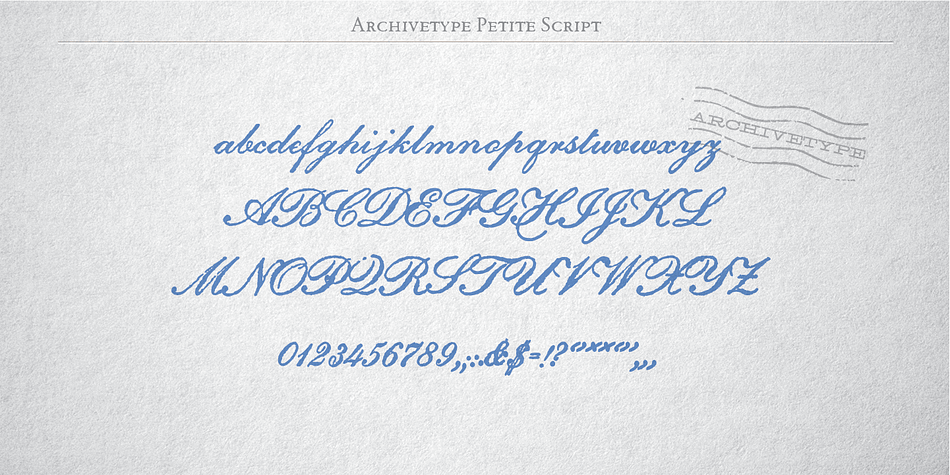 Archivetype Petite Script
ARCHIVETYPE
abcdefghijklmnopqrstuvwxyz
ABCDEFGHIJKL
MNOPQRSTUVWXYZ
0123456789,;:.&$=!?